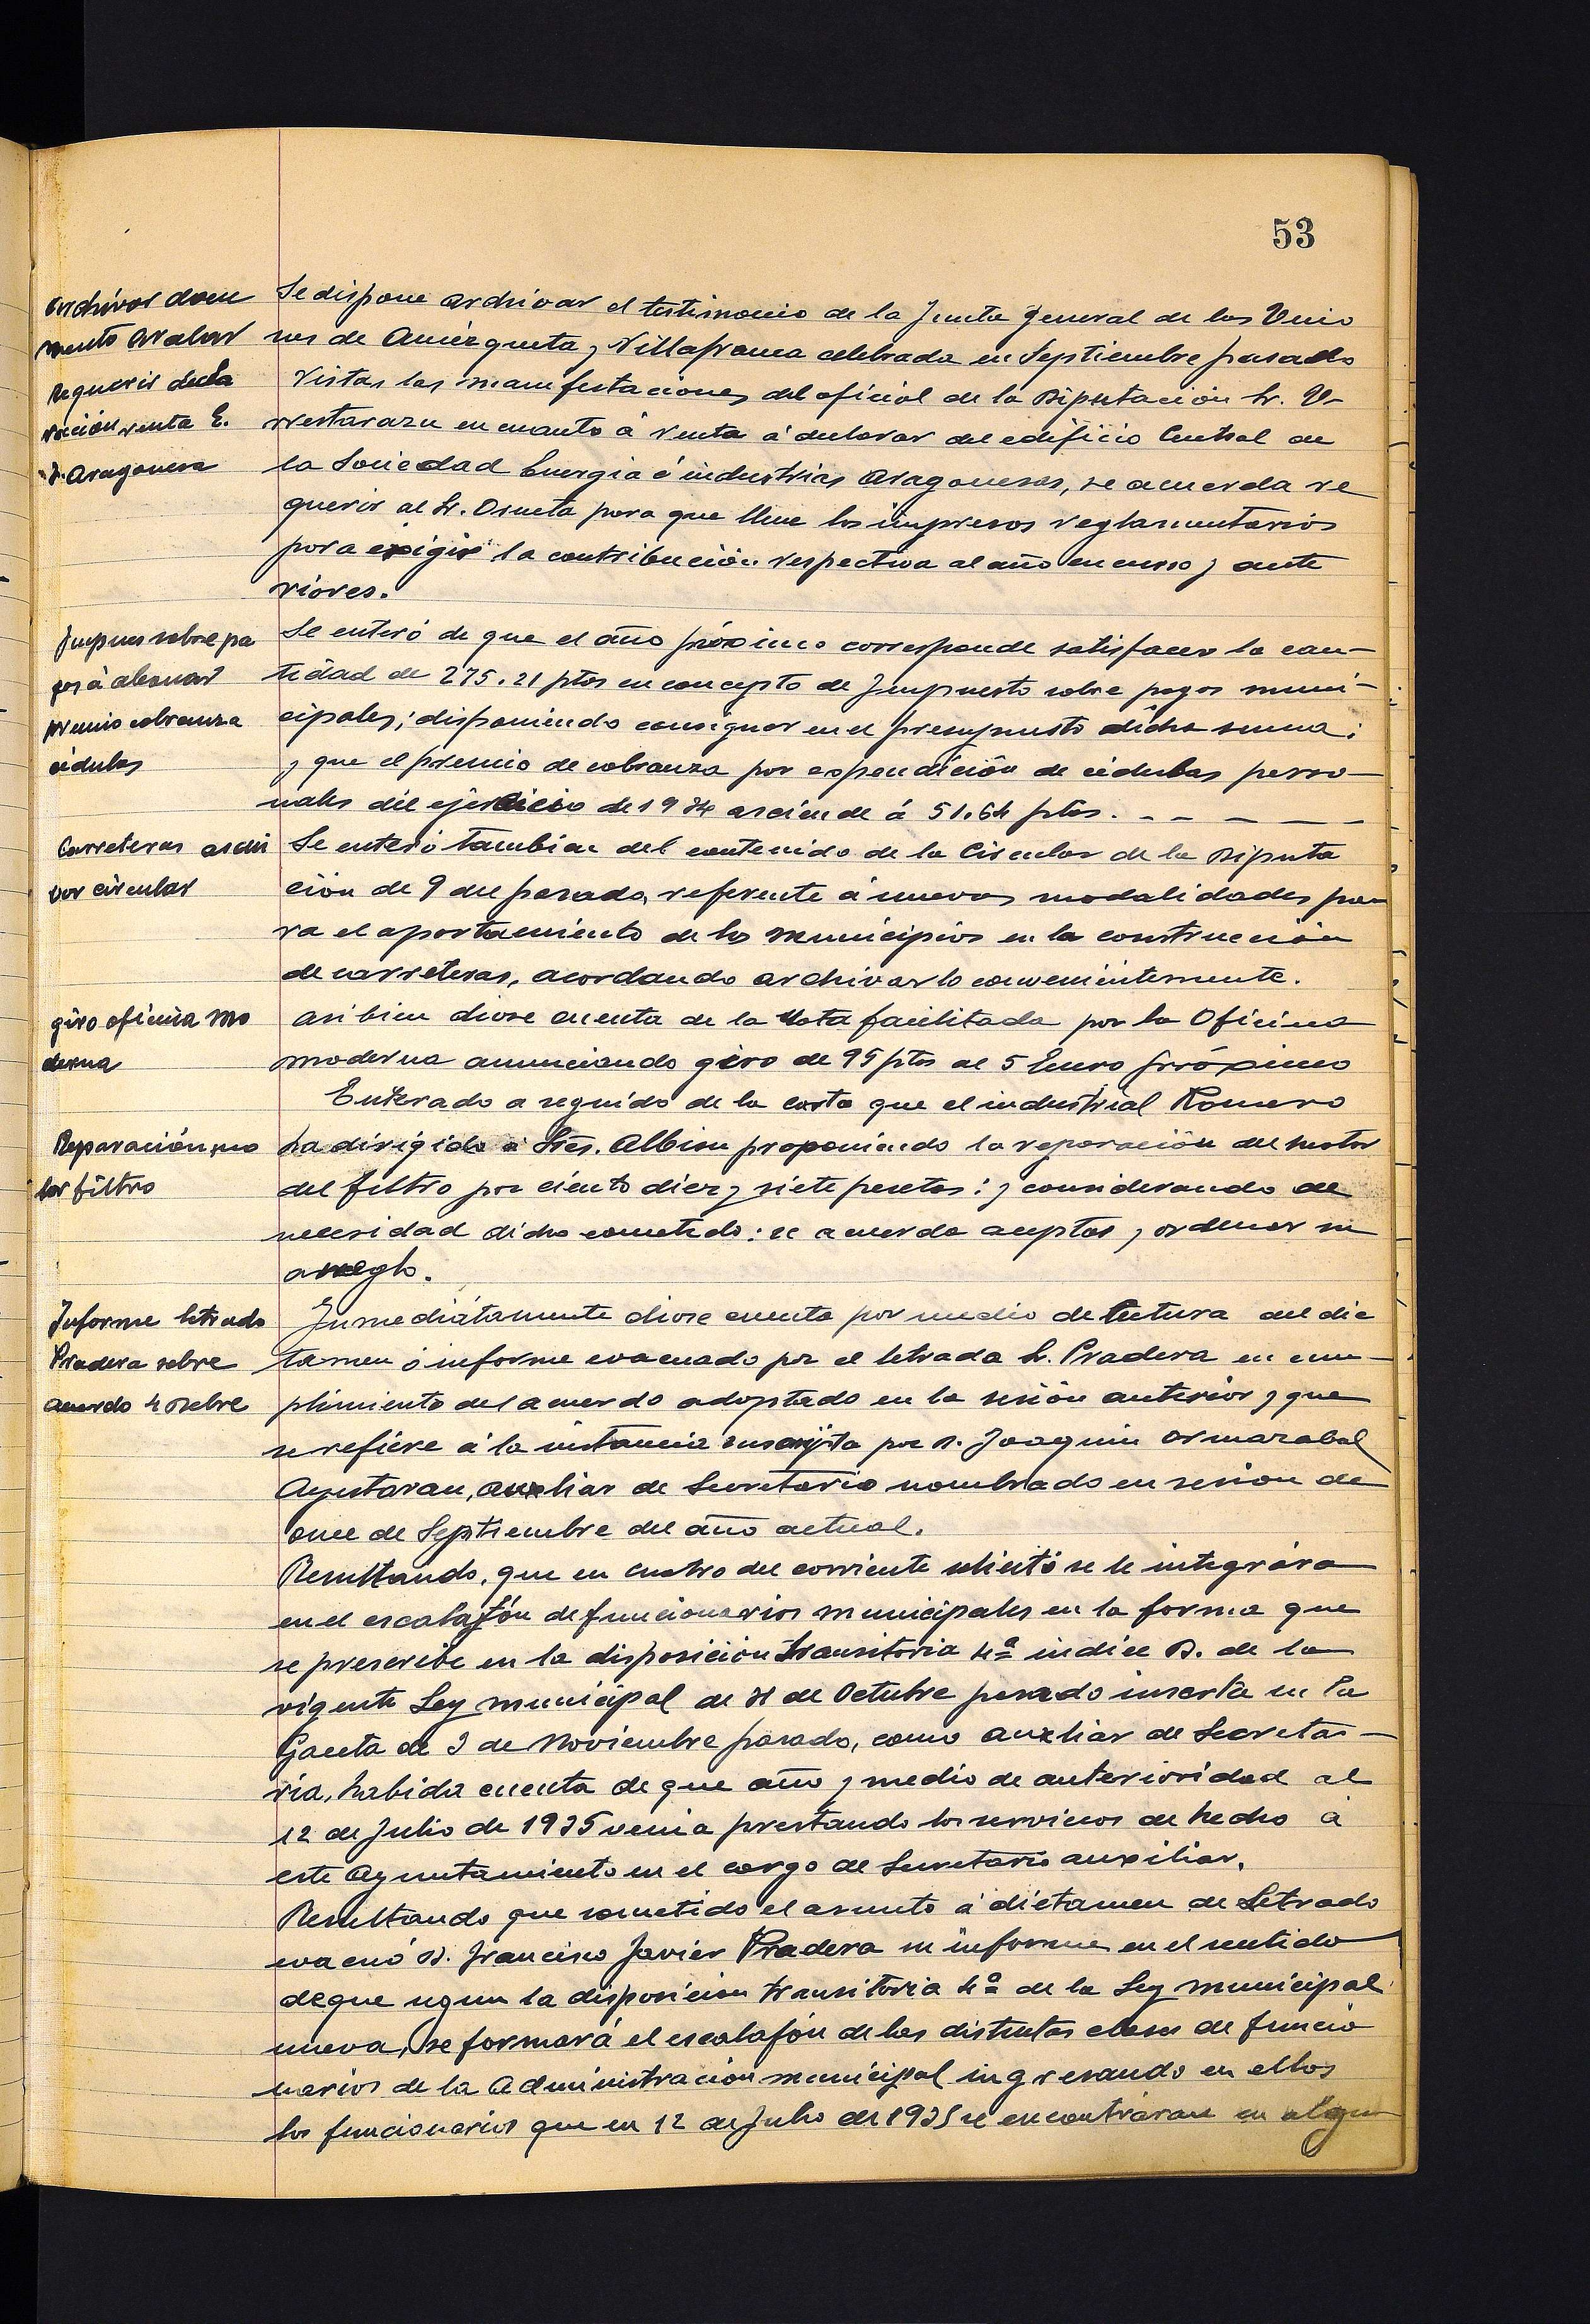 53
Archivar docu
mento Aralar
Se dispone archivar el testimonio de la Junta general de las Unio
nes de Amézqueta y Villafranca celebrada en Septiembre pasado
Requerir decla
ración renta E.
I. Aragonesa
Vistas las manifestaciones del oficial de la Diputación Sr. U-
rrestarazu en cuanto á renta á declarar del edificio Central de
la Sociedad Energia é industrias Aragonesas, se acuerda re
querir al Sr. Osueta para que llene los impresos reglamentarios
para exigir la contribución respectiva al año en curso y ante
riores.
Impues sobre pa
gos á abonar
premio cobranza
cédulas
Se enteró de que el año próximo corresponde satisfacer la can-
tidad de 275.21 ptas en concepto de Impuesto sobre pagos muni-
cipales; disponiendo consignar en el presupuesto dicha suma;
y que el premio de cobranza por expendición de cédulas perso-
nales del ejercicio de 1934 asciende á 51.64 ptas. - - - - - -
Carreteras archi
var circular
Se enteró tambien del contenido de la Circular de la Diputa
ción de 9 del pasado, referente á nuevas modalidades pa
ra el aportamiento de los municipios en la construcción
de carreteras, acordando archivarlo convenientemente.
giro oficina mo
derna
Asi bien diose cuenta de la Nota facilitada por la Oficina
moderna anunciando giro de 95 ptas al 5 Enero próximo
Enterado a seguido de la carta que el industrial Romero
Reparación mo
tor filtro
ha dirigido á Sres. Albisu proponiendo la reparación del motor
del filtro por ciento diez y siete pesetas: y considerando de
necesidad dicho cometido: se acuerda aceptar y ordenar su
arreglo.
Informe letrado
Pradera sobre
acuerdo 4 Dcbre
Inmediátamente diose cuenta por medio de lectura del dic
tamen ó informe evacuado por el letrado Sr. Pradera en cum-
plimiento del acuerdo adoptado en la sesión anterior y que
se refiere á la instancia suscripta por D. Joaquin Ormazabal
Ayestaran, auxliar de Secretario nombrado en sesion de
once de Septiembre del año actual.
Resultando, que en cuatro del corriente solicitó se le integrára
en el escalafón de funcionarios municipales en la forma que
se prescribe en la disposición transitoria 4ª indice B. de la
vigente Ley municipal de 31 de Octubre pasado inserta en la
Gaceta de 3 de Noviembre pasado, como auxliar de Secreta-
ría, habida cuenta de que año y medio de anterioridad al
12 de Julio de 1935 venia prestando los servicios de hecho á
este Ayuntamiento en el cargo de Secretario auxiliar.
Resultando que sometido el asunto á dictamen de Letrado
evacuó D. Francisco Javier Pradera su informe en el sentido
de que segun la disposicion transitoria 4ª de la Ley municipal
nueva, se formará el escalafón de las distintas clases de funcio
narios de la Administración municipal ingresando en ellos
los funcionarios que en 12 de Julio de 1935 se encontráran en algun